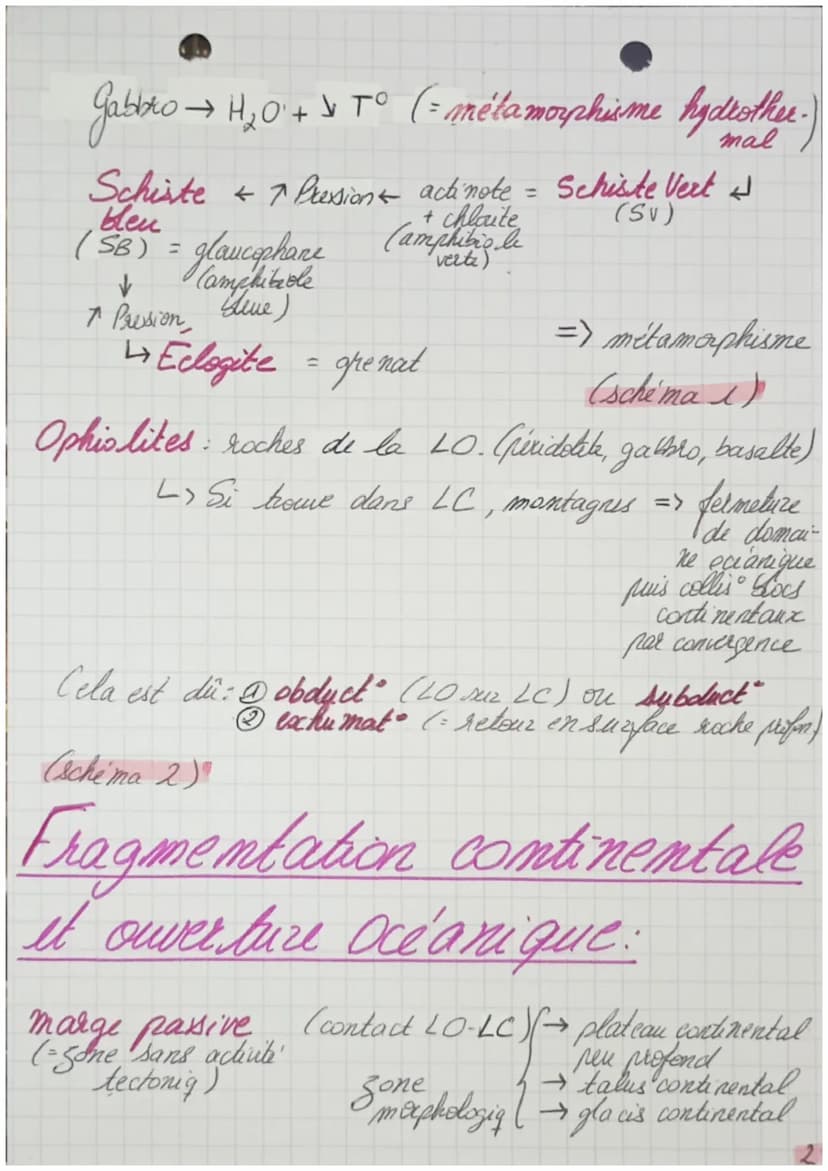 Gabbro → H₂O + ↘ T° (= métamorphisme hydrother-
mal)
Schiste ← ↗ Pression ← actinote = Schiste Vert ↲
bleu + chlorite (SV)
(SB) = glaucophane (amphibole
verte)
↓ (amphibole
bleue)
↗ Pression
↳ Éclogite = grenat
=> métamorphisme
(schéma 1)
Ophiolites : roches de la LO. (péridotite, gabbro, basalte)
↳ Si trouve dans LC, montagnes => fermeture
de domai-
ne océanique
puis collis° blocs
continentaux
par convergence
Cela est dû : ① obduct° (LO sur LC) ou subduct°
② exhumat° (= retour en surface roche profon)
(schéma 2)
Fragmentation continentale
et ouverture Océanique :
marge passive (contact LO-LC) { → plateau continental
(= zone sans activité peu profond
tectoniq) zone → talus continental
morphologiq → glacis continental
2